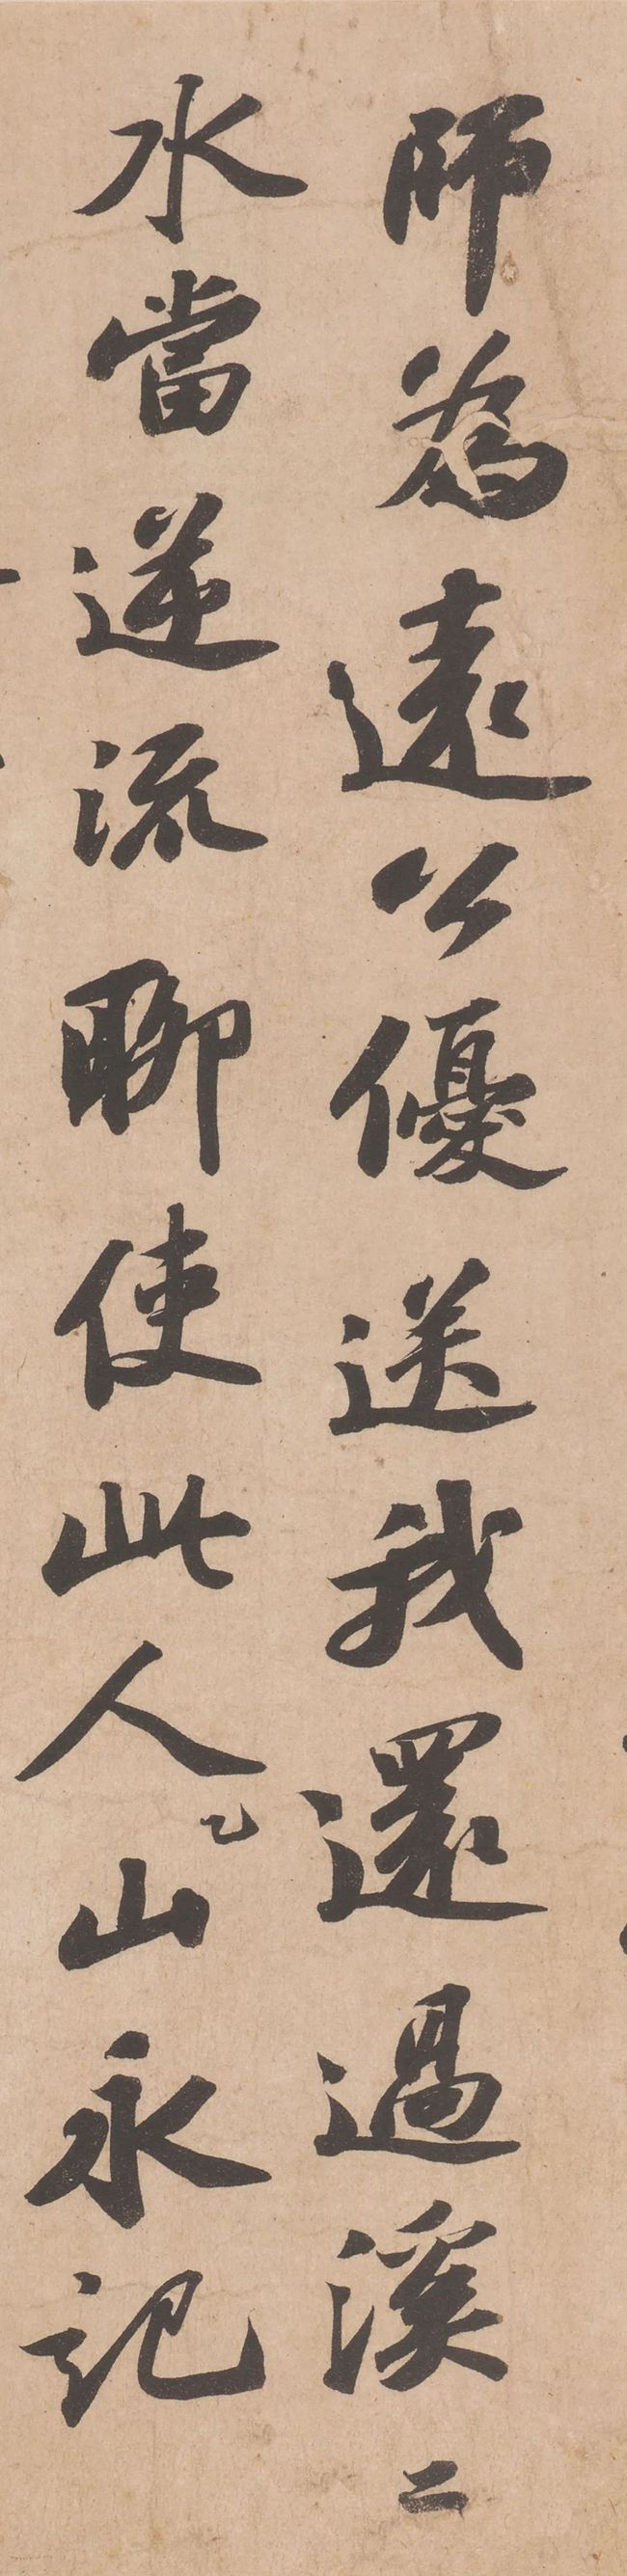 師為遠公優送我還過溪二
水當逆流聊使此人乙山永記